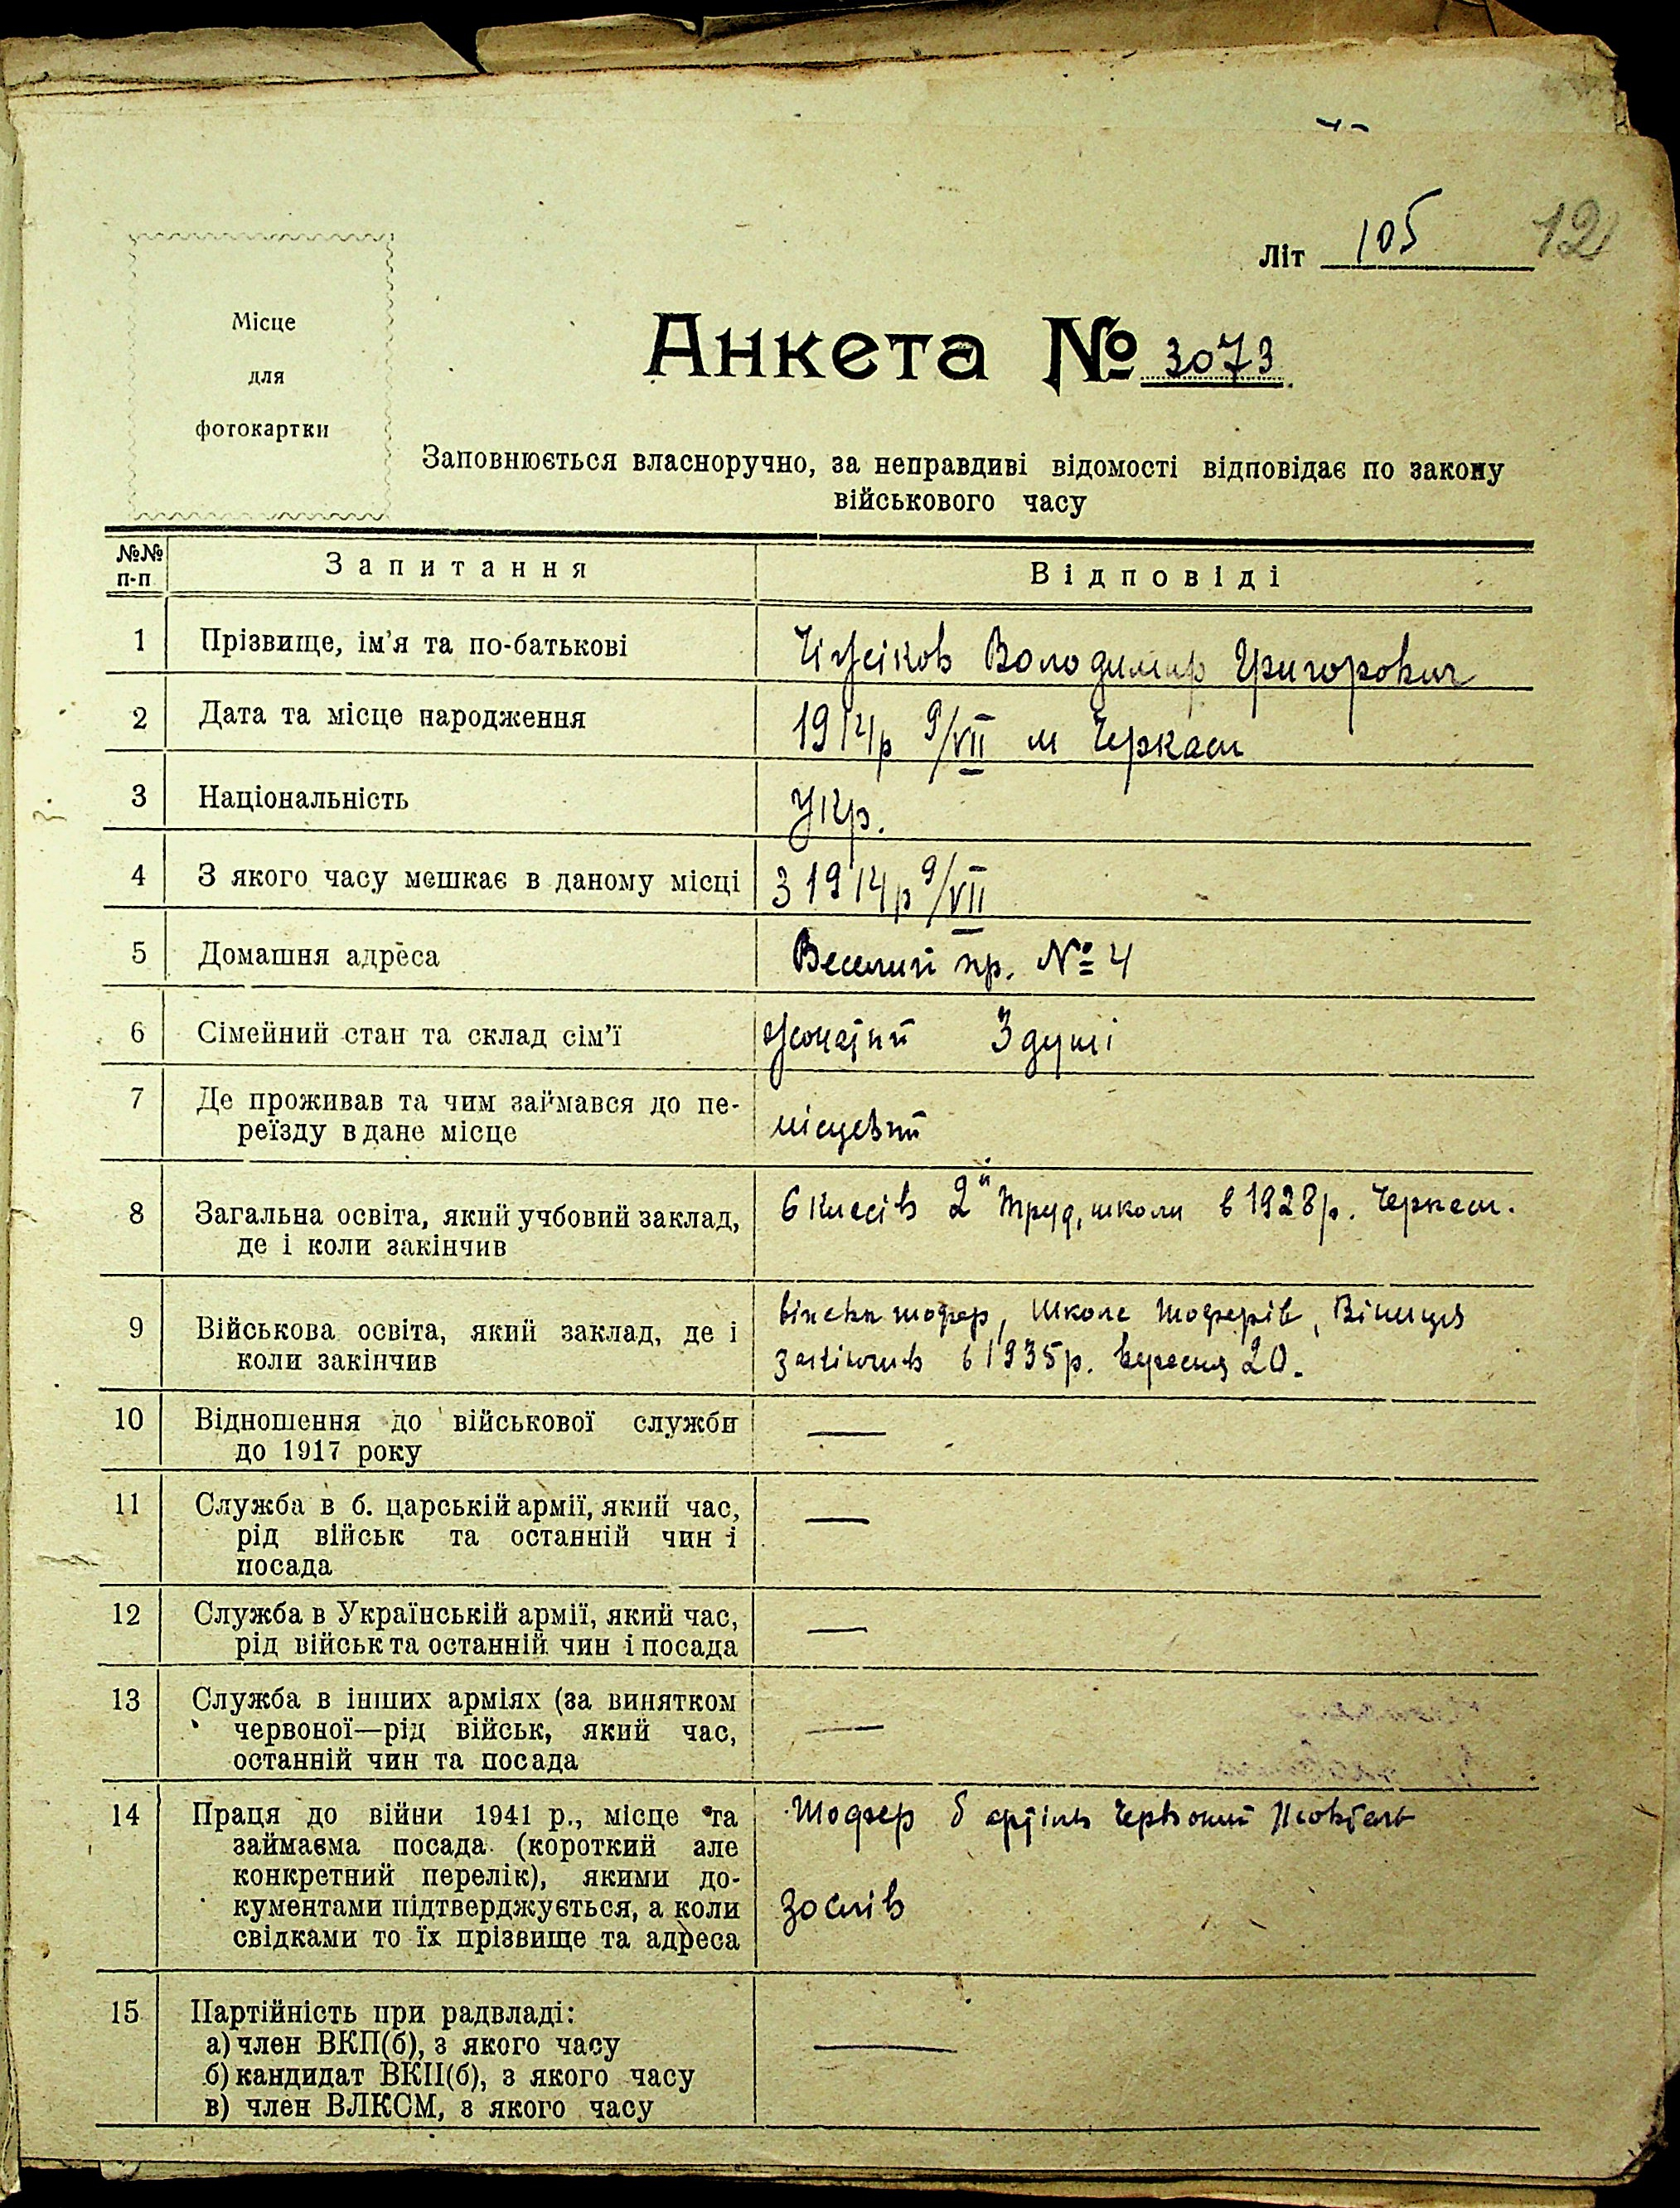 12
Літ 105
Місце
для
фотокартки
Анкета № 3073
Заповнюється власноручно, за неправдиві відомості відповідає по закону
військового часу
№№ п-п
Запитання
Відповіді
1 Прізвище, ім'я та по-батькові
Володимир Григорович
2 Дата та місце народження
1914р 9/VII м Черкаси
3 Національність
Укр.
4 З якого часу мешкає в даному місці
З 1914р 9/VII
5 Домашня адреса
Веселий пр. № 4
6 Сімейний стан та склад сім'ї
жонатий 3 душі
7 Де проживав та чим займався до пе-
реїзду в дане місце
місцевий
8 Загальна освіта, який учбовий заклад,
де і коли закінчив
6 класів 2й Труд, школи в 1928р. Черкаси.
9 Військова освіта, який заклад, де і
коли закінчив
шофер, Школа Шоферів, Вінниця
закінчив в 1935р. вересня 20.
10 Відношення до військової служби
до 1917 року
—
11 Служба в б. царській армії, який час,
рід військ та останній чин і
посада
—
12 Служба в Українській армії, який час,
рід військ та останній чин і посада
—
13 Служба в інших арміях (за винятком
червоної—рід військ, який час,
останній чин та посада
—
14 Праця до війни 1941 р., місце та
займаєма посада (короткий але
конкретний перелік), якими до-
кументами підтверджується, а коли
свідками то їх прізвище та адреса
Шофер в артіль Червоний
15 Партійність при радвладі:
а) член ВКП(б), з якого часу
б) кандидат ВКП(б), з якого часу
в) член ВЛКСМ, з якого часу
—